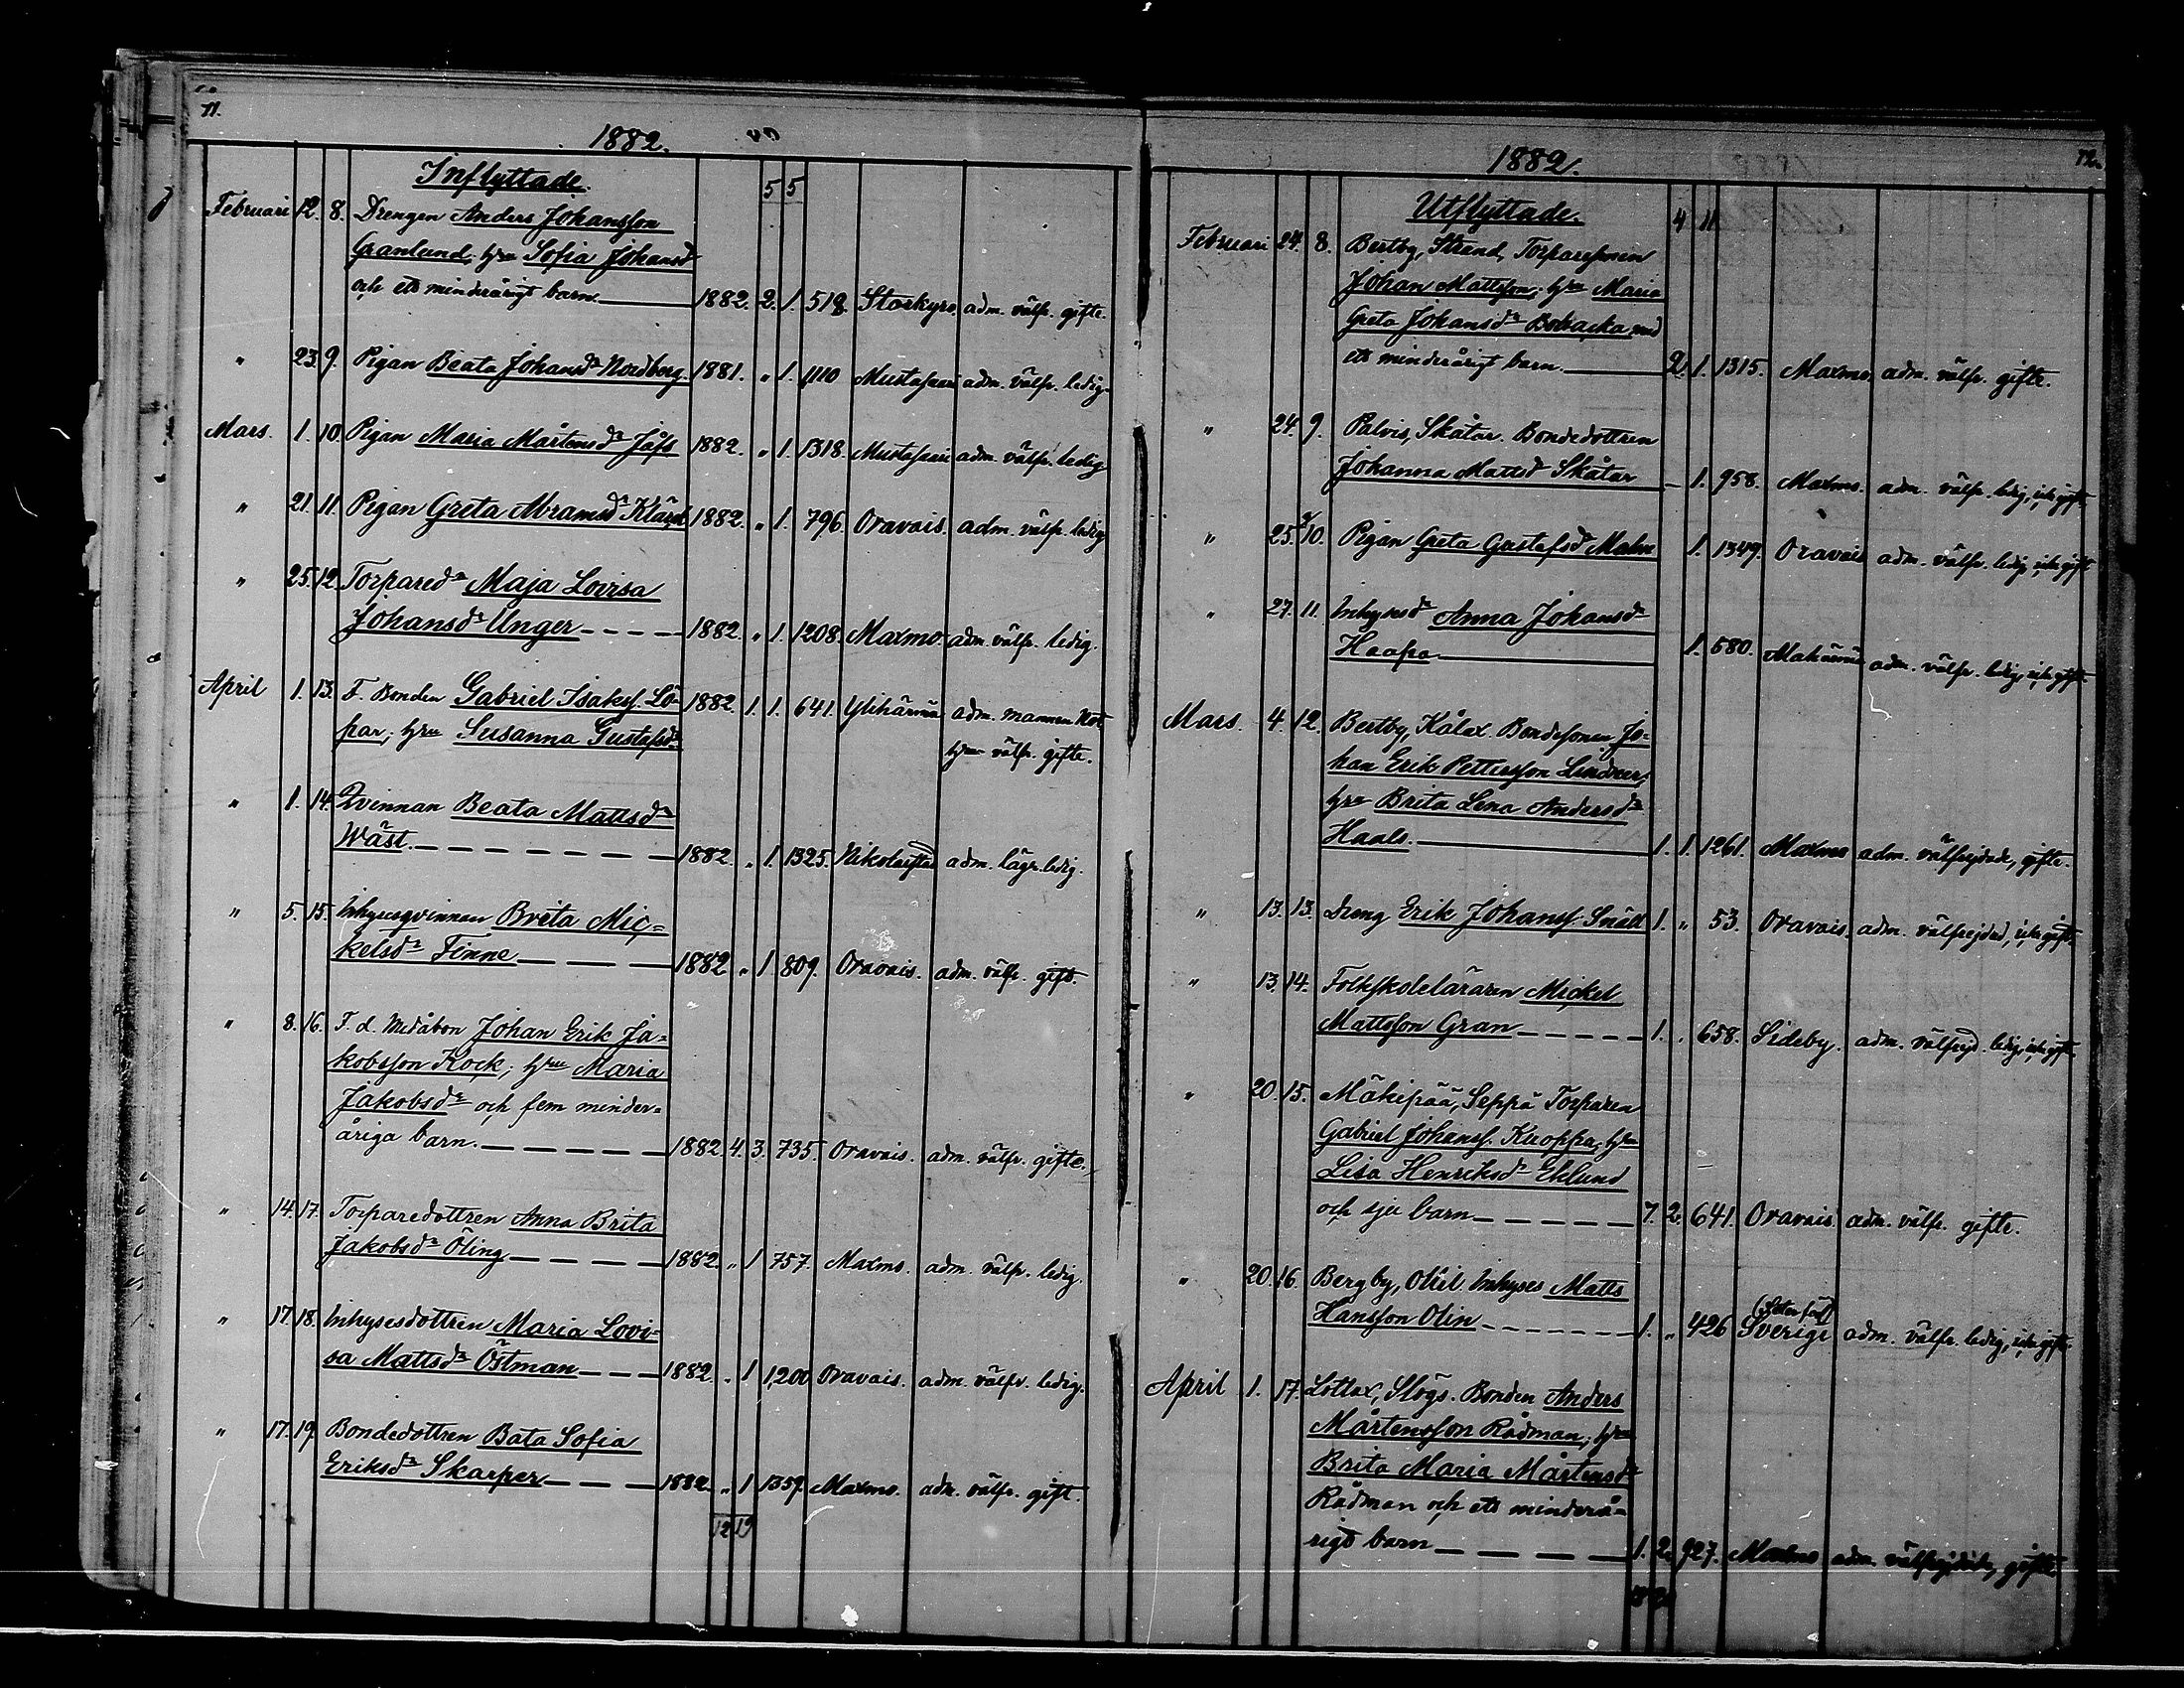 11.
1882.
Inflyttade.
5 5
Februari 12. 8. Drengen Anders Johansson
Granlund, hru Sofia Johansdr
och ett minderårigt barn 1882. 2. 1. 518. Storkyro adm. välfr. gifte.
" 23. 9. Pigan Beata Johansdr Nordberg. 1881. " 1. 1110 Mustasaari adm. välfr. ledig.
Mars. 1. 10. Pigan Maria Mårtensdr Jåfs 1882. " 1. 1318. Mustasaari adm. välfr. ledig
" 21. 11. Pigan Greta Abramsdr 1882. " 1. 796. Oravais. adm. välfr. ledig
" 25. 12. Torparedr Maja Lovisa
Johansdr Unger 1882. " 1. 1208. Maxmo. adm. välfr. ledig.
April 1. 13. F. Bonden Gabriel Isaks. Lö-
par, hru Susanna Gustafsdr 1882. 1. 1. 641. Ylihärmä adm. mannen
hru välfr. gifte.
" 1. 14. Qvinnan Beata Mattsdr
Wäst. 1882. " 1. 1325. Nikolaistad adm. ledig.
" 5. 15. Inhysesqvinnan Brita Mic-
kelsdr Finne 1882 " 1 809. Oravais. adm. välfr. gift.
" 8. 16. F. d. Johan Erik Ja-
kobsson Kock, hru Maria
Jakobsdr och fem minder-
åriga barn. 1882. 4. 3. 735. Oravais. adm. välfr. gifte.
" 14. 17. Torparedottren Anna Brita
Jakobsdr Öling 1882. " 1 757. Maxmo. adm. välfr. ledig.
" 17. 18. Inhysesdottren Maria Lovi-
sa Mattsdr Östman 1882. " 1 1,200 Oravais. adm. välfr. ledig.
" 17. 19. Bondedottren Bata Sofia
Eriksdr Skarper 1882. " 1 1359. Maxmo. adm. välfr. gift.
12 19
12.
1882.
Utflyttade.
4 11
Februari 24. 8. Bertby, Strand, Torparesonen
Johan Mattsson, hru Maria
Greta Johansdr med
ett minderårigt barn. 2. 1. 1315. Maxmo. adm. välfr. gifte.
" 24. 9. Palvis, Skåtar. Bondedottren
Johanna Mattsdr Skåtar 1. 958. Maxmo. adm. välfr. ledig, icke gift
" 25. 10. Pigan Greta Gustafsdr Malm 1. 1349. Oravais adm. välfr. ledig icke gift
" 27. 11. Inhysesdr Anna Johansdr
Haapa 1. 580. adm. välfr. ledig, icke gift
Mars. 4. 12. Bertby, Kålax. Bondesonen Jo-
han Erik Pettersson
hru Brita Lena Andersdr
Haals. 1. 1. 1261. Maxmo adm. välfrejdade, gifte.
" 13. 13. Dreng Erik Johanss. Snäll 1. " 53. Oravais. adm. välfrejdad, icke gift.
" 13. 14. Folkskoleläraren Mickel
Mattsson Gran 1. . 658. Sideby. adm. välfrejd. ledig, icke gift.
" 20. 15. Mäkipää, Seppä Torparen
Gabriel Johanss. Knoppa, hru
Lisa Henriksdr Eklund
och sju barn 7. 2. 641. Oravais adm. välfr. gifte.
" 20. 16. Bergby, Inhyses Matts
Hansson Olin 1. " 426 Sverige adm. välfr. ledig, icke gift.
April 1. 17. Lotlax, Slögs. Bonden Anders
Mårtensson Rådman, hru
Brita Maria Mårtensdr
Rådman och ett minderå-
rigt barn 1. 2. 927. Maxmo adm. välfrejdade, gifte